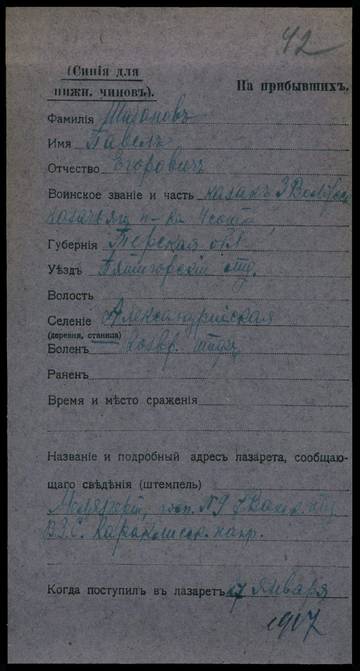 42
(Синія для
нижн. чиновъ).
На прибывшихъ.
Фамилія
Имя Павелъ
Отчество Егоровичъ
Воинское званіе и часть казакъ 3
казачьяго п-ка 4 сот
Губернія Терская обл
Уѣздъ Пятигорскій отд.
Волость
Селеніе Александрійская
(деревня, станица)
Боленъ возвр. тифъ
Раненъ
Время и мѣсто сраженія
Названіе и подробный адресъ лазарета, сообщаю-
щаго свѣдѣнія (штемпель)
госп. №9
В.З.С. Каракилисск. напр.
Когда поступилъ въ лазаретъ 17 января
1917